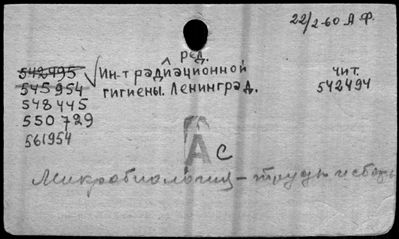 22/2-60 А.Ф.
ред.
542495 √ Ин-т радиационной
545954 гигиены. Ленинград.
чит.
542494
548445
550729
561954
А с
Микробиология – труды и сборн